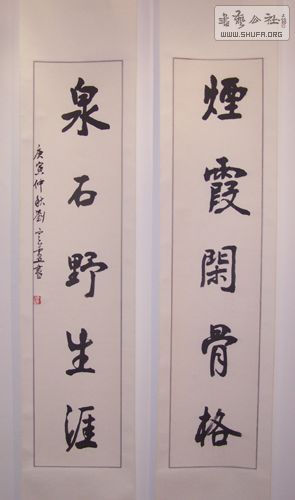 煙霞閑骨格
泉石野生涯
庚寅仲秋劉
书艺公社
WWW.SHUFA.ORG